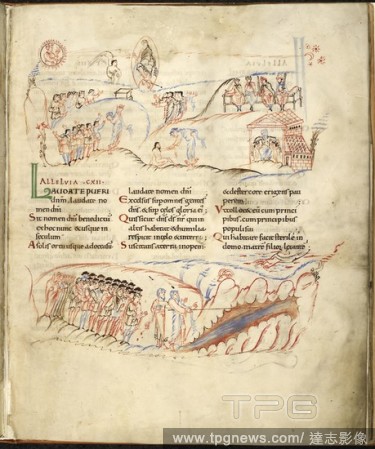 ALLELVIA · CXII·
LAUDATE PUERI
dnm, laudate no
men dni
Sit nomen dni benedictu
exhocnunc &usque in
seculum
Asolis ortu usque adoccasu
laudate nomen dni
Excelsus super omnes gentes
dns, &super celos gloria ei
Quis sicut dns ds nr qui in
altis habitat &humilia
respicit incelo &interra
Suscitans aterra inopem
&destercore erigens pau
perem
Ut collocet eum cum princi
pibus, cum principibus
populi sui
Qui habitare facit sterile in
domo matre filioru letante
TPG
www.tpgnews.com/ 達志影像